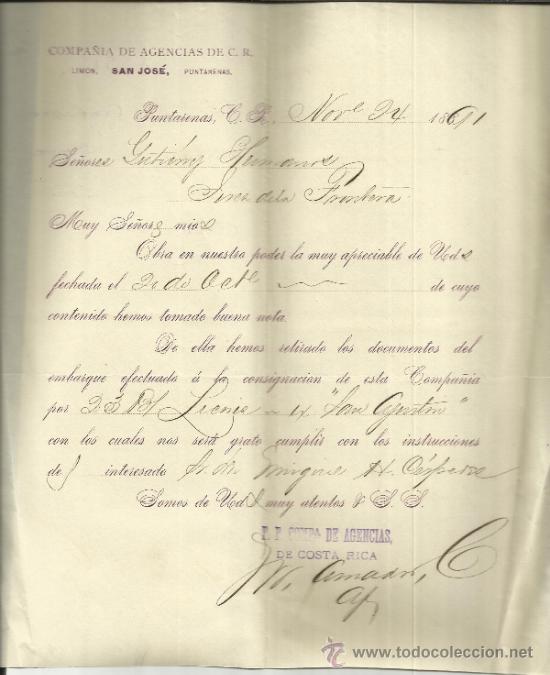 COMPAÑIA DE AGENCIAS DE C. R.
LIMON, SAN JOSÉ, PUNTARENAS.
Puntarenas, C. R. Nove 24 1891
Señores Gutiérrez Hermanos
Jerez de la Frontera
Muy Señores mios
Obra en nuestro poder la muy apreciable de Uds
fechada el 2 de Octe de cuyo
contenido hemos tomado buena nota.
De ella hemos retirado los documentos del
embarque efectuado á la consignacion de esta Compañia
por "San Agustin"
con los cuales nos será grato cumplir con los instrucciones
del interesado Sr. Dn Enrique H.
Somos de Uds muy atentos S. S.
P. P. COMPA. DE AGENCIAS,
DE COSTA RICA
Amador, C
todocoleccion
www.todocoleccion.net